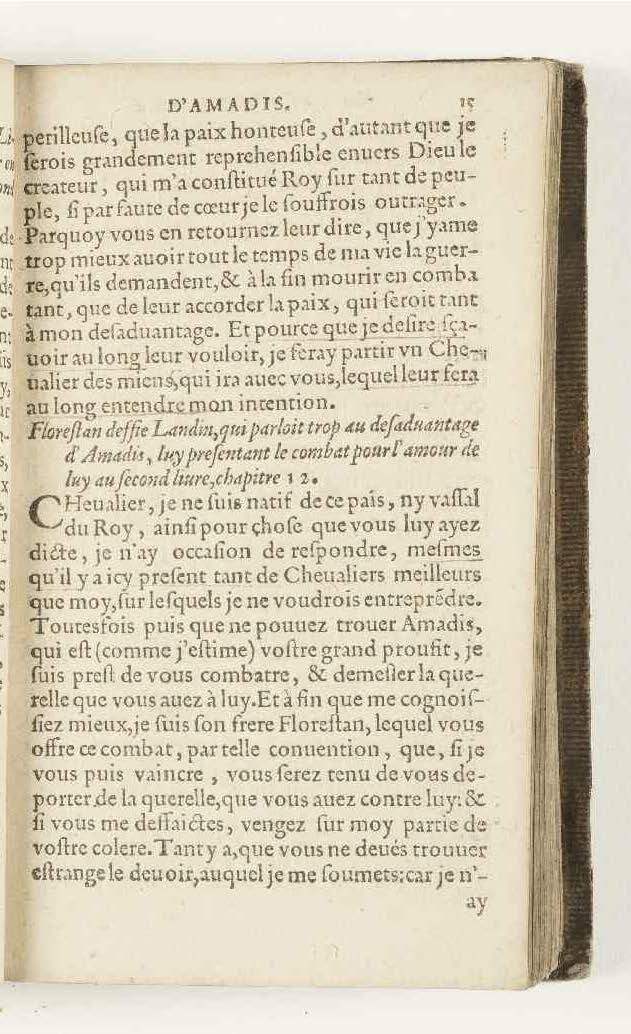 D'AMADIS. 15
perilleuſe, que la paix honteuſe, d'autant que je
ſerois grandement reprehenſible enuers Dieu le
createur, qui m'a conſtitué Roy ſur tant de peu-
ple, ſi par faute de cœur je le ſouffrois outrager.
Parquoy vous en retournez leur dire, que j'yame
trop mieux auoir tout le temps de ma vie la guer-
re, qu'ils demandent, & à la fin mourir en comba
tant, que de leur accorder la paix, qui ſeroit tant
à mon deſaduantage. Et pource que je deſire ſça-
uoir au long leur vouloir, je feray partir vn Che-
ualier des miens, qui ira auec vous, lequel leur fera
au long entendre mon intention.
Floreſtan deffie Landin, qui parloit trop au deſaduantage
d'Amadis, luy preſentant le combat pour l'amour de
luy au ſecond liure, chapitre 12.
CHeualier, je ne ſuis natif de ce païs, ny vaſſal
du Roy, ainſi pour choſe que vous luy ayez
dicte, je n'ay occaſion de reſpondre, meſmes
qu'il y a icy preſent tant de Cheualiers meilleurs
que moy, ſur leſquels je ne voudrois entreprēdre.
Toutesfois puis que ne pouuez trouer Amadis,
qui eſt (comme j'eſtime) voſtre grand proufit, je
ſuis preſt de vous combatre, & demeſler la que-
relle que vous auez à luy. Et à fin que me cognoiſ-
ſiez mieux, je ſuis ſon frere Floreſtan, lequel vous
offre ce combat, par telle conuention, que, ſi je
vous puis vaincre, vous ſerez tenu de vous de-
porter de la querelle, que vous auez contre luy: &
ſi vous me deffaictes, vengez ſur moy partie de
voſtre colere. Tant y a, que vous ne deués trouuer
eſtrange le deuoir, auquel je me ſoumets: car je n'-
ay